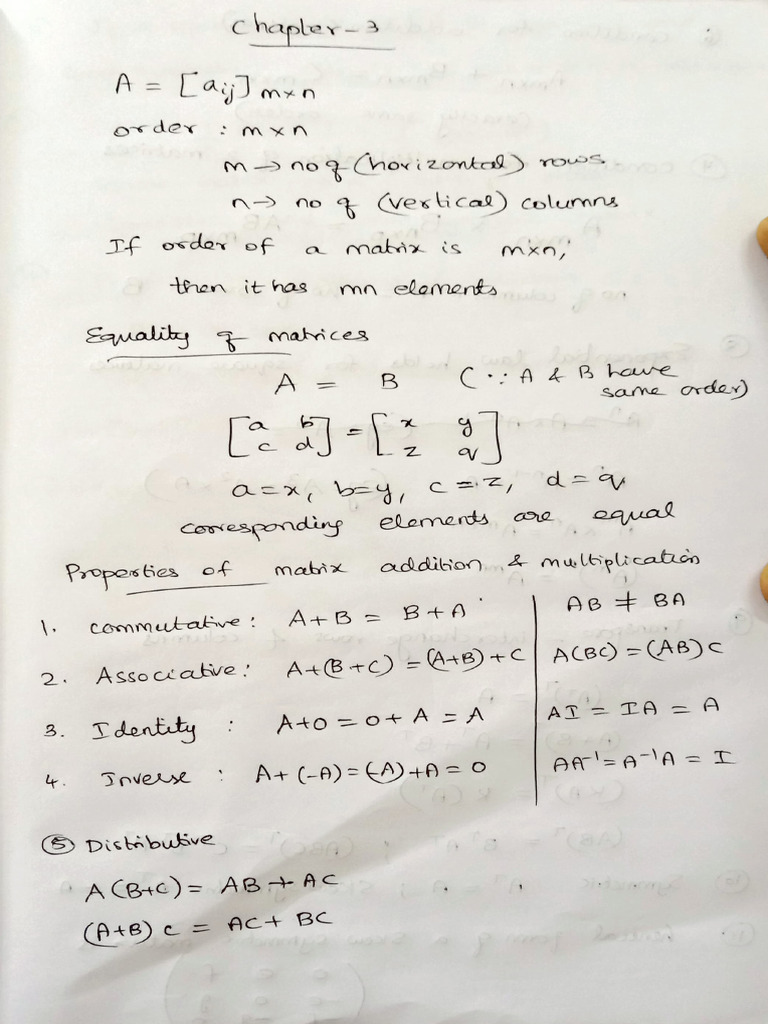 Chapter-3
A = [aij] m×n
order : m×n
m → no of (horizontal) rows
n → no of (vertical) columns
If order of a matrix is m×n,
then it has mn elements
Equality of matrices
A = B (∵ A & B have
same order)
[a b
c d] = [x y
z q]
a=x, b=y, c=z, d=q
corresponding elements are equal
Properties of matrix addition & multiplication
1. commutative: A+B = B+A | AB ≠ BA
2. Associative: A+(B+C) = (A+B)+C | A(BC) = (AB)C
3. Identity : A+0 = 0+A = A | AI = IA = A
4. Inverse : A+(-A) = (-A)+A = 0 | AA⁻¹ = A⁻¹A = I
⑤ Distributive
A(B+C) = AB + AC
(A+B) C = AC + BC